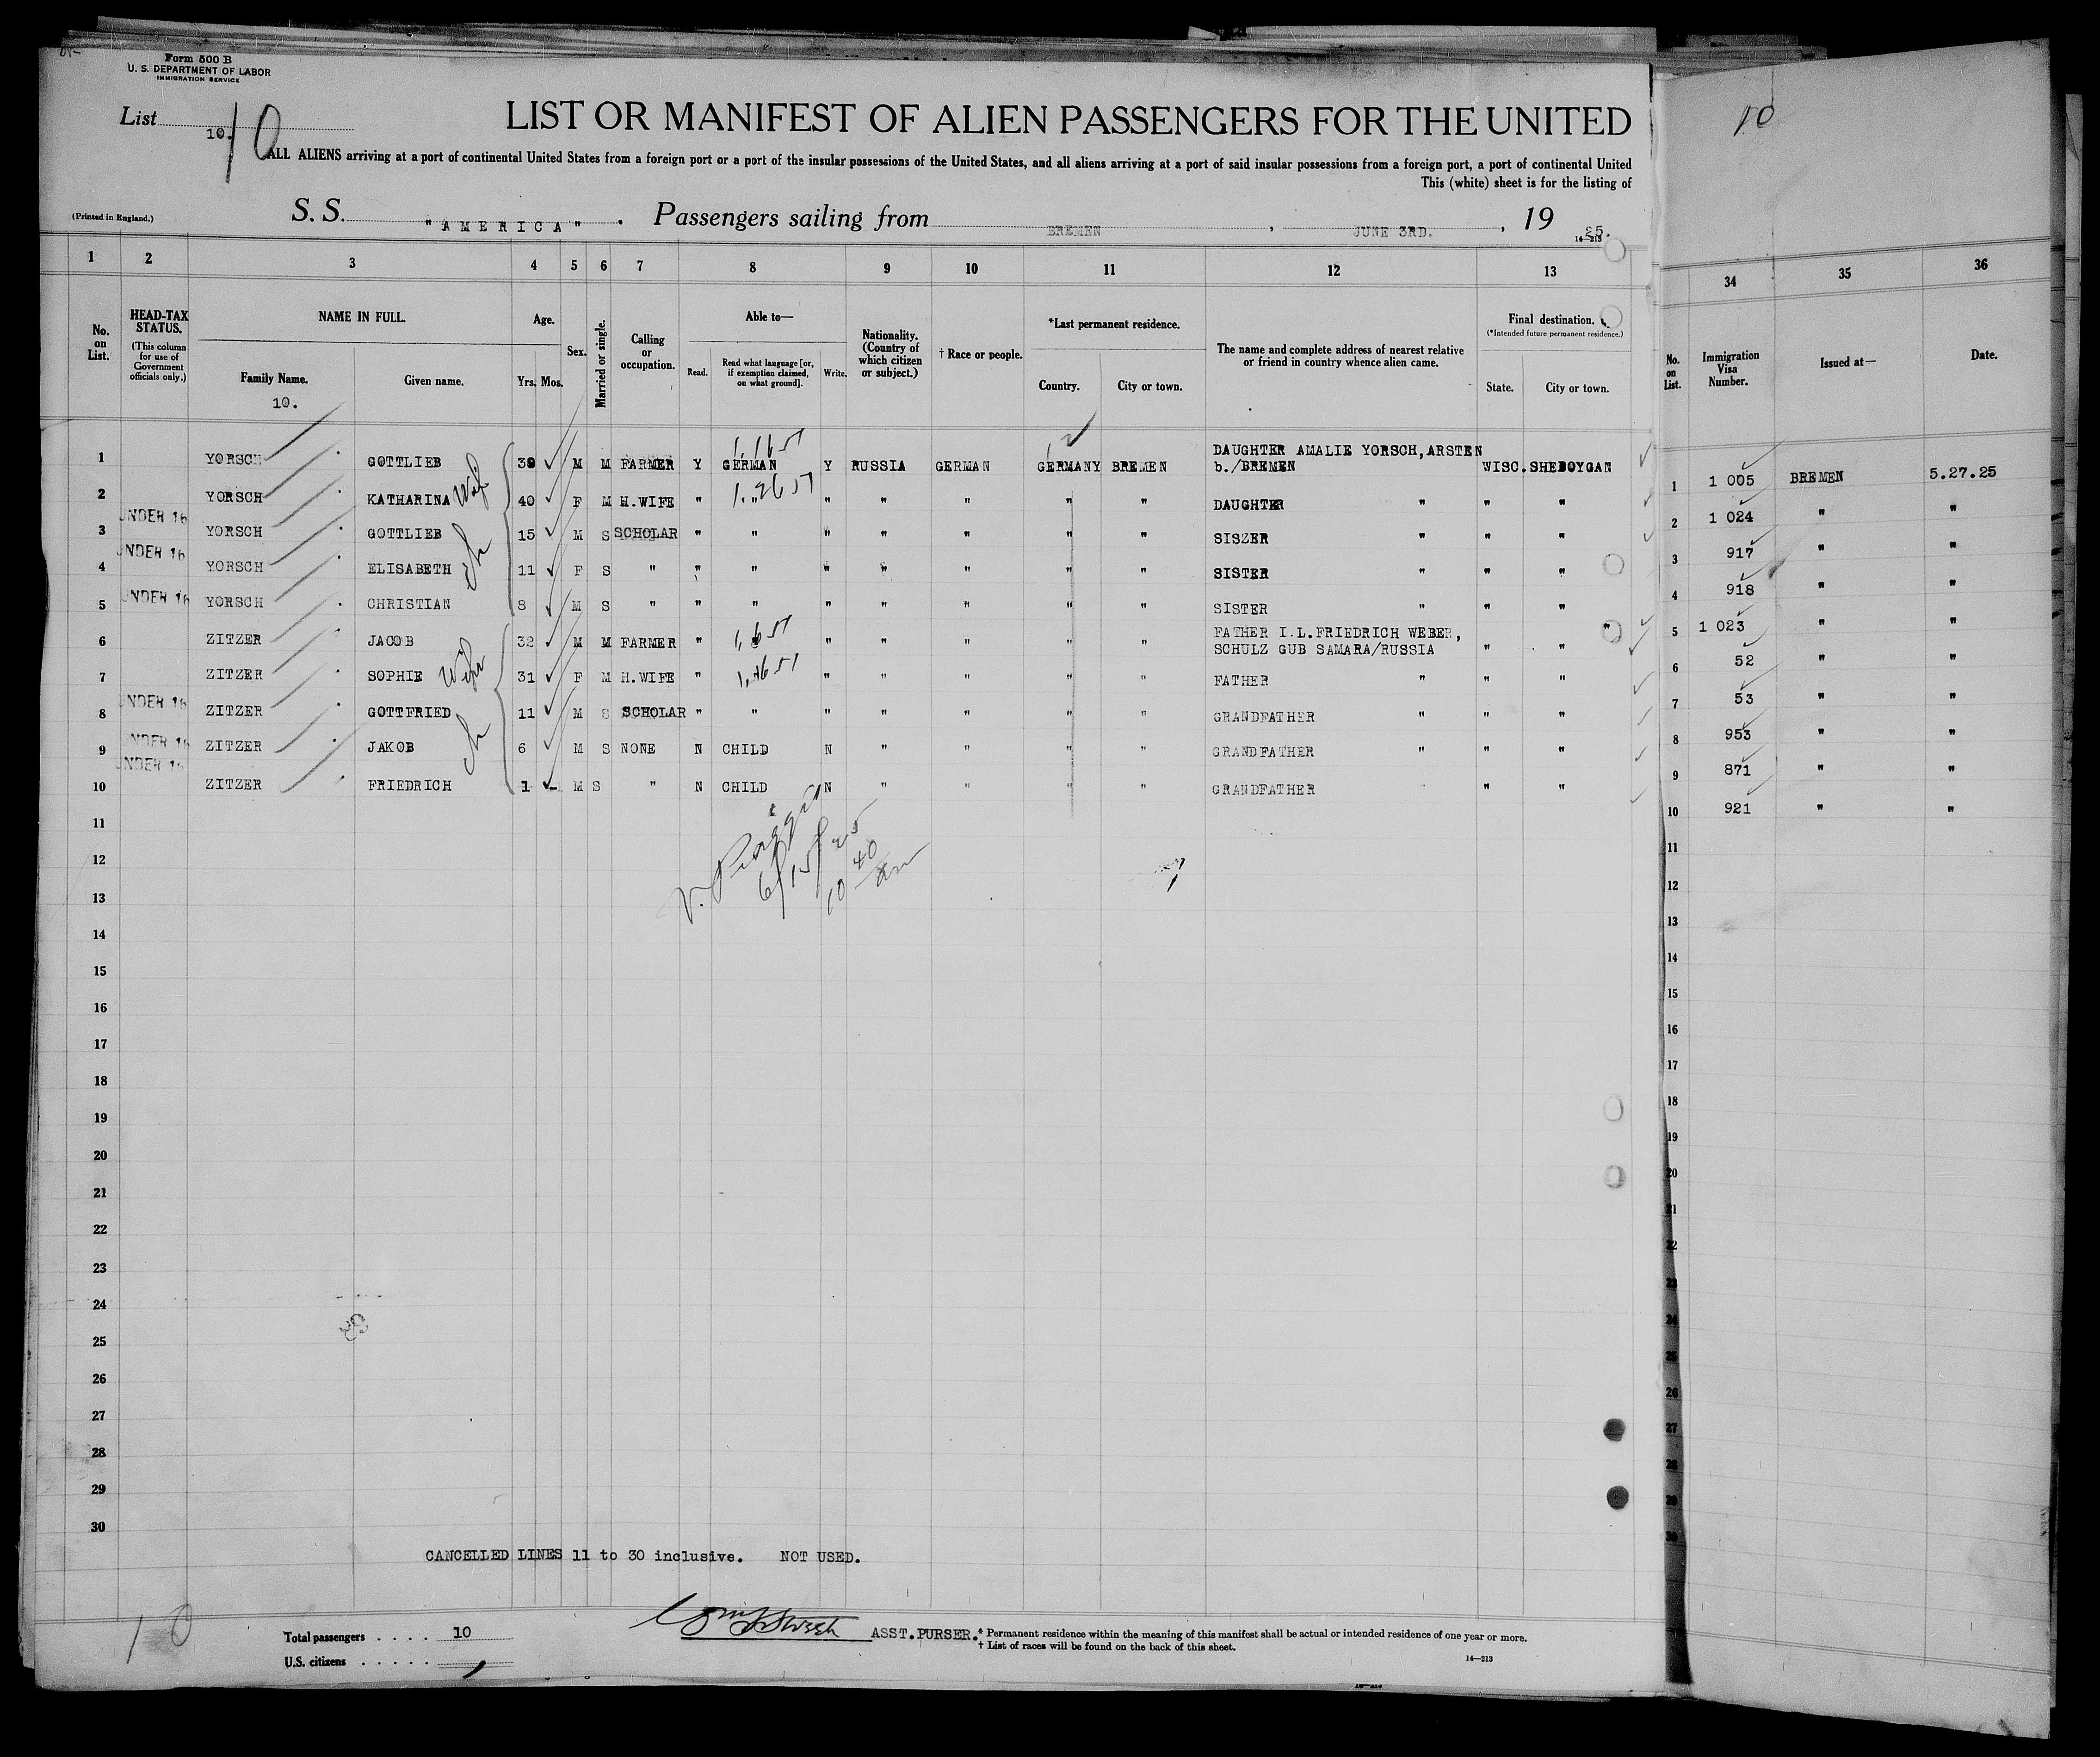 Form 500 B
U. S. DEPARTMENT OF LABOR
IMMIGRATION SERVICE
List 10. 10
LIST OR MANIFEST OF ALIEN PASSENGERS FOR THE UNITED
10
ALL ALIENS arriving at a port of continental United States from a foreign port or a port of the insular possessions of the United States, and all aliens arriving at a port of said insular possessions from a foreign port, a port of continental United
This (white) sheet is for the listing of
(Printed in England.)
S. S. "AMERICA". Passengers sailing from BREMEN, JUNE 3RD., 1925.
14—213
1 2 3 4 5 6 7 8 9 10 11 12 13 34 35 36
No. on List.
HEAD-TAX STATUS.
(This column for use of Government officials only.)
NAME IN FULL.
Family Name.
10.
Given name.
Age.
Yrs. Mos.
Sex.
Married or single.
Calling or occupation.
Able to—
Read.
Read what language [or, if exemption claimed, on what ground].
Write.
Nationality. (Country of which citizen or subject.)
† Race or people.
*Last permanent residence.
Country. City or town.
The name and complete address of nearest relative or friend in country whence alien came.
Final destination.
(*Intended future permanent residence.)
State. City or town.
No. on List.
Immigration Visa Number.
Issued at—
Date.
1 YORSCH GOTTLIEB 39 M M FARMER Y GERMAN Y RUSSIA GERMAN GERMANY BREMEN DAUGHTER AMALIE YORSCH, ARSTEN b./BREMEN WISC. SHEBOYGAN 1 1 005 BREMEN 5.27.25
2 YORSCH KATHARINA Wife 40 F M H.WIFE " " " " " " " DAUGHTER " " " 2 1 024 " "
3 UNDER 16 YORSCH GOTTLIEB 15 M S SCHOLAR " " " " " " " SISZER " " " 3 917 " "
4 UNDER 16 YORSCH ELISABETH ch 11 F S " " " " " " " " SISTER " " " 4 918 " "
5 UNDER 16 YORSCH CHRISTIAN 8 M S " " " " " " " " SISTER " " " 5 1 023 " "
6 ZITZER JACOB 32 M M FARMER " " " " " " FATHER I.L.FRIEDRICH WEBER, SCHULZ GUB SAMARA/RUSSIA " " 6 52 " "
7 ZITZER SOPHIE Wife 31 F M H.WIFE " " " " " " FATHER " " " 7 53 " "
8 UNDER 16 ZITZER GOTTFRIED 11 M S SCHOLAR " " " " " " " GRANDFATHER " " " 8 953 " "
9 UNDER 16 ZITZER JAKOB ch 6 M S NONE N CHILD N " " " " GRANDFATHER " " " 9 871 " "
10 UNDER 16 ZITZER FRIEDRICH 1 M S " N CHILD N " " " " GRANDFATHER " " 10 921 " "
11 11
12 6/15/25 12
13 10 40 am 13
14 14
15 15
16 16
17 17
18 18
19 19
20 20
21 21
22 22
23 23
24 24
25 25
26 26
27 27
28 28
29 29
30 30
CANCELLED LINES 11 to 30 inclusive. NOT USED.
10
Total passengers . . . . 10
U.S. citizens . . . . .
ASST. PURSER.
* Permanent residence within the meaning of this manifest shall be actual or intended residence of one year or more.
† List of races will be found on the back of this sheet.
14—213